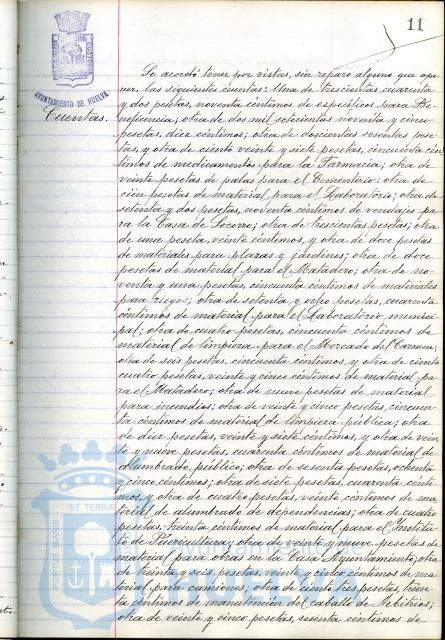 11
AYUNTAMIENTO DE HUELVA
Cuentas.
Se acordó tener por vistas, sin reparo alguno que opo-
ner, las siguientes cuentas: Una de trescientas cuarenta
y dos pesetas, noventa céntimos de específicos para Be-
neficencia; otra de dos mil setecientas noventa y cinco
pesetas, diez céntimos; otra de doscientas sesenta pese-
tas y otra de ciento veinte y siete pesetas, cincuenta cén-
timos de medicamentos para la Farmacia; otra de
veinte pesetas de palas para el Cementerio; otra de
cien pesetas de material para el Laboratorio; otra de
setenta y dos pesetas, noventa céntimos de vendajes pa-
ra la Casa de Socorro; otra de trescientas pesetas; otra
de una peseta, veinte céntimos, y otra de doce pesetas
de materiales para plazas y jardines; otra de doce
pesetas de material para el Matadero; otra de no-
venta y una pesetas, cincuenta céntimos de materiales
para riegos; otra de setenta y ocho pesetas, cuarenta
céntimos de material para el Laboratorio munici-
pal; otra de cuatro pesetas, cincuenta céntimos de
material de limpieza para el Mercado del Carmen;
otra de seis pesetas, cincuenta céntimos, y otra de ciento
cuatro pesetas, veinte y cinco céntimos de material pa-
ra el Matadero; otra de nueve pesetas de material
para incendios; otra de veinte y cinco pesetas, cincuen-
ta céntimos de material de limpieza pública; otra
de diez pesetas, veinte y siete céntimos, y otra de vein-
te y nueve pesetas, cuarenta céntimos de material de
alumbrado público; otra de sesenta pesetas, ochenta
y cinco céntimos; otra de siete pesetas, cuarenta cénti-
mos, y otra de cuatro pesetas, veinte céntimos de ma-
terial de alumbrado de dependencias; otra de cuatro
pesetas, treinta céntimos de material para el Institu-
to de Puericultura; otra de veinte y nueve pesetas de
material para obras en la Casa Ayuntamiento; otra
de treinta y seis pesetas, veinte y cinco céntimos de ma-
terial para camiones; otra de ciento tres pesetas, trein-
ta céntimos de manutención del caballo de Arbitrios;
otra de veinte y cinco pesetas, sesenta céntimos de
PORTUS MARIS ET TERRAE